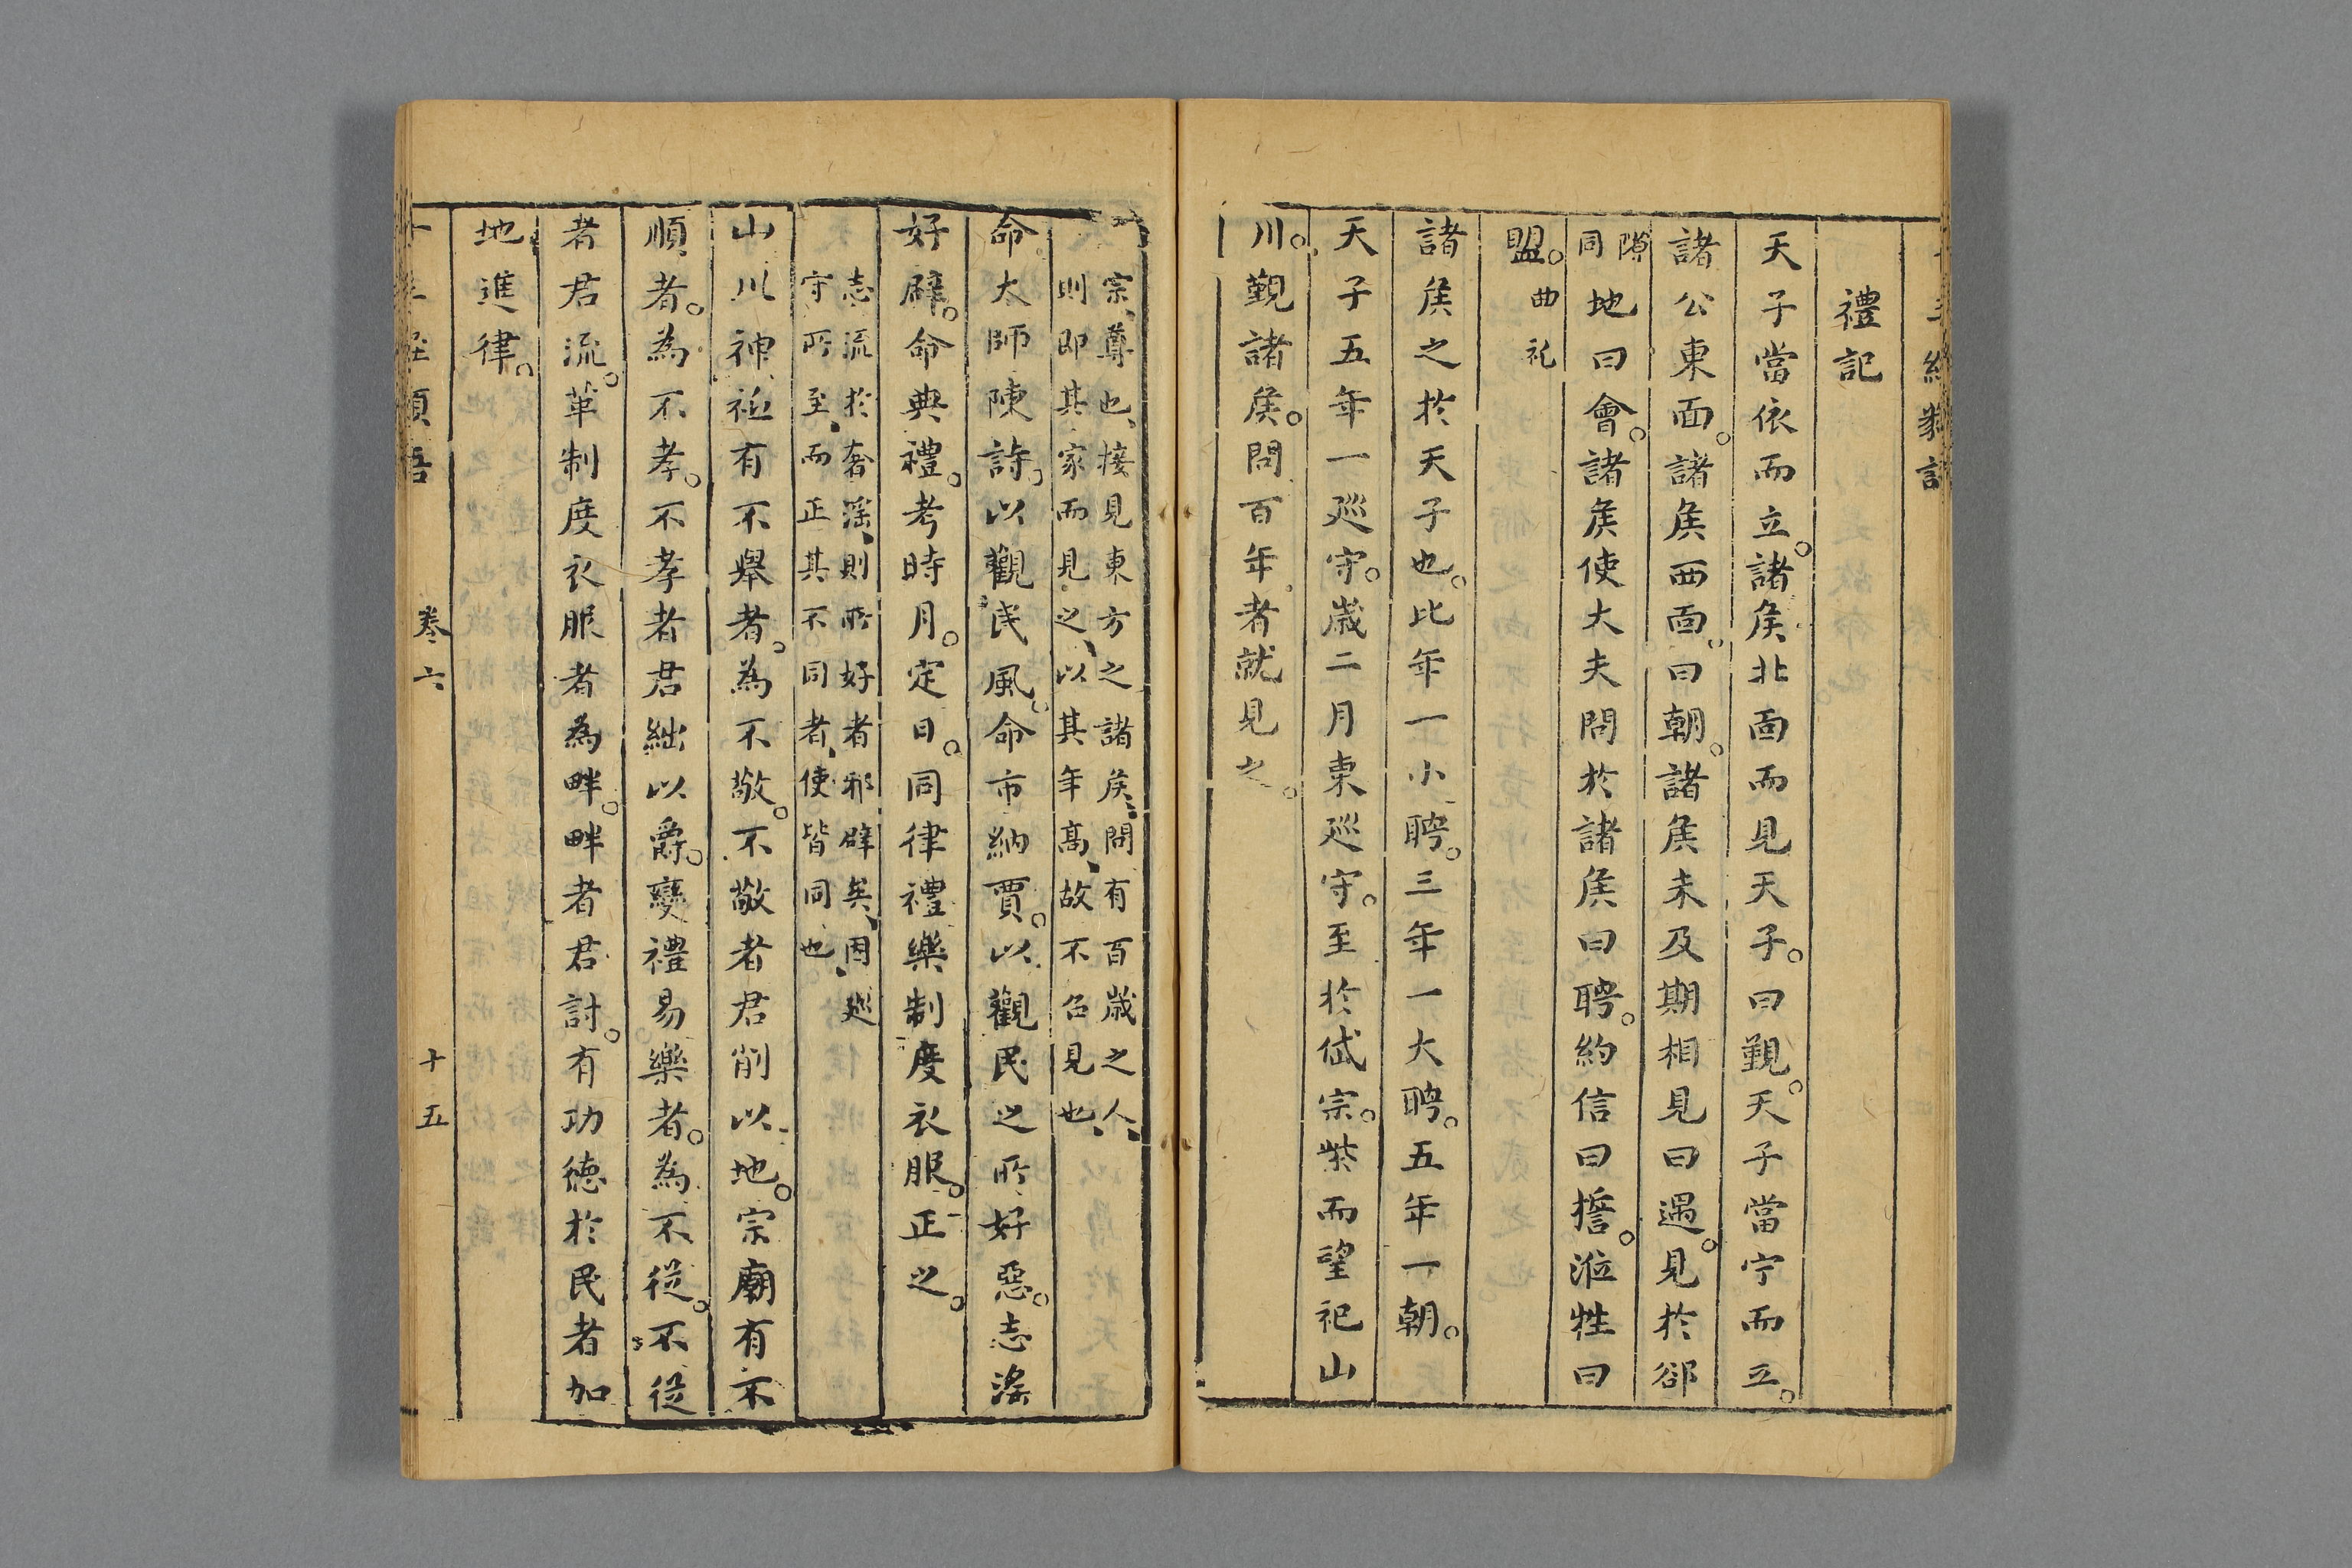 禮記
天子當依而立。諸矦北面而見天子。曰覲。天子當宁而立。
諸公東面。諸矦西面。曰朝。諸矦未及期相見曰遇。見於郤
隙同地曰會。諸矦使大夫問於諸矦曰聘。約信曰誓。涖牲曰
盟。曲礼
諸矦之於天子也。比年一小聘。三年一大聘。五年一朝。
天子五年一廵守。歲二月東廵守。至於岱宗。柴而望祀山
川。覲諸矦。問百年者就見之。
宗、尊也、接見東方之諸矦、問有百歲之人、
則即其家而見之、以其年高、故不召見也、
命太師陳詩。以觀民風。命市納賈。以觀民之所好惡。志淫
好辟。命典禮。考時月。定日。同律禮樂制度衣服。正之。
志流於奢淫、則所好者邪辟矣、因廵
守所至、而正其不同者、使皆同也、
山川神祗有不舉者。為不敬。不敬者君削以地。宗廟有不
順者。為不孝。不孝者君絀以爵。變禮易樂者。為不從。不從
者君流。革制度衣服者為畔。畔者君討。有功德於民者加
地進律。
卷六 十五